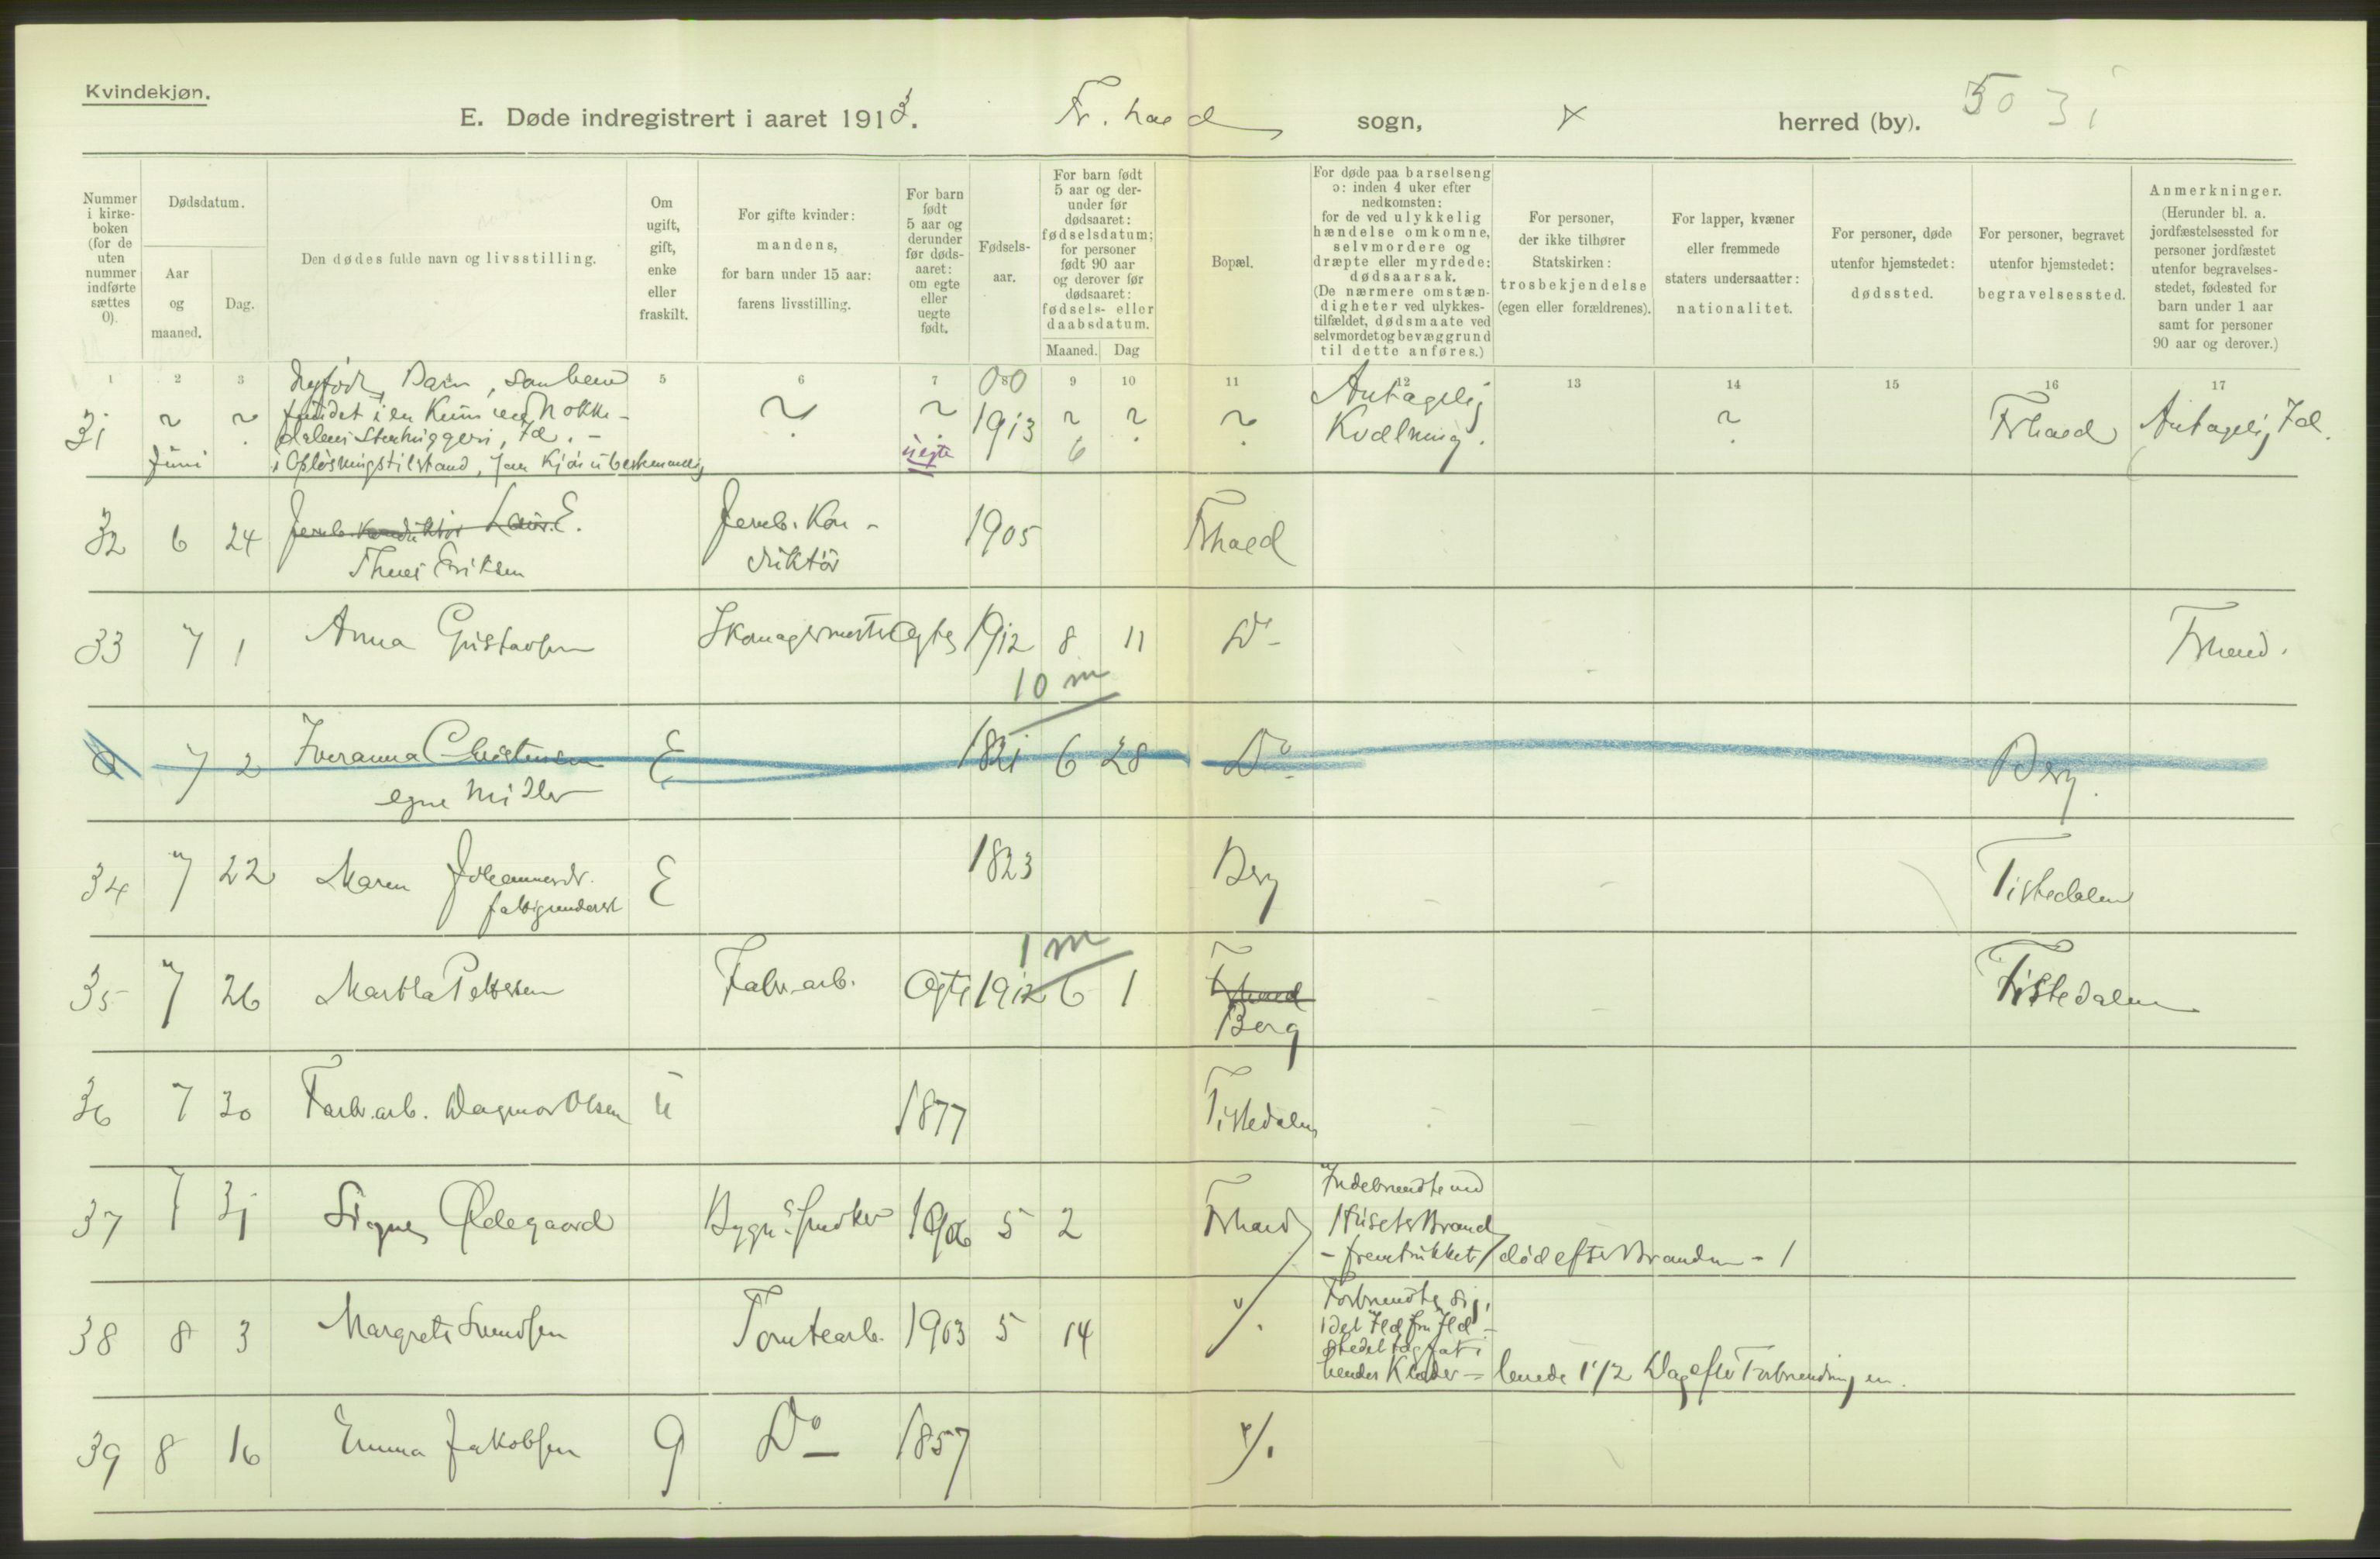 Kvindekjøn.
E. Døde indregistrert i aaret 1913. Fr. hald sogn, herred (by). 50 31
Nummer i kirke-boken (for de uten nummer indførte sættes 0).
Dødsdatum.
Aar og maaned.
Dag.
Den dødes fulde navn og livsstilling.
Om ugift, gift, enke eller fraskilt.
For gifte kvinder: mandens, for barn under 15 aar: farens livsstilling.
For barn født 5 aar og derunder før døds-aaret: om egte eller uegte født.
Fødsels-aar.
For barn født 5 aar og der-under før dødsaaret: fødselsdatum; for personer født 90 aar og derover før dødsaaret: fødsels- eller daabsdatum.
Maaned. Dag
Bopæl.
For døde paa barselseng ɔ: inden 4 uker efter nedkomsten: for de ved ulykkelig hændelse omkomne, selvmordere og dræpte eller myrdede: dødsaarsak. (De nærmere omstæn-digheter ved ulykkes-tilfældet, dødsmaate ved selvmordet og bevæggrund til dette anføres.)
For personer, der ikke tilhører Statskirken: trosbekjendelse (egen eller forældrenes).
For lapper, kvæner eller fremmede staters undersaatter: nationalitet.
For personer, døde utenfor hjemstedet: dødssted.
For personer, begravet utenfor hjemstedet: begravelsessted.
Anmerkninger. (Herunder bl. a. jordfæstelsessted for personer jordfæstet utenfor begravelses-stedet, fødested for barn under 1 aar samt for personer 90 aar og derover.)
1 2 3 5 6 7 8 9 10 11 12 13 14 15 16 17
31 ? Juni ? Nyfødt Barn, som blev
fundet i en Kum ved
Stenhuggeri, Id. -
i Opløsningstilstand, Kjøn ubestemmelig
? ? uegte 1913 ? 6 ? ? Antagelig
Kvælning. ? Frhald Antagelig Id.
32 6 24 Jernb. Konduktør E.
Eriksen Jernb. Kon-
duktør 1905 Frhald
33 7 1 Anna Gustavsen Skomagermester Egte 1912 8 11 Do - Frhald.
10 m
0 7 2 Iveranna Christensen
egne Midler E 1821 6 28 Do - Berg.
34 7 22 Maren Johannesdr.
fattigunderst E 1823 Berg Tistedalen
1 m
35 7 26 Martha Pettersen Fabr.arb. Egte 1912 6 1 Frhald
Berg Tistedalen
36 7 30 Fabr.arb. Dagmar Olsen u 1877 Tistedalen
37 7 31 Signe Ødegaard Bygn.s snedker 1906 5 2 Frhald Indebrændte ved
Husets Brand
- fremtrukket / død efter Branden - /
38 8 3 Margrete Svendsen Tomtearb. 1903 5 14 "/. Forbrændte sig,
idet Ild fra Ild-
stedet tog fat i
hendes Klæder - levede 1 1/2 Dag efter Forbrændingen.
39 8 16 Emma Jakobsen g Do - 1857 "/.